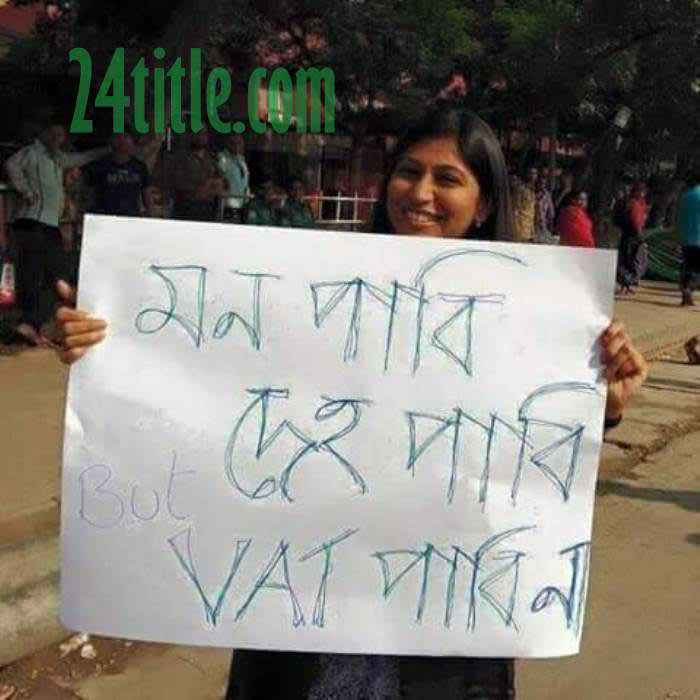 24title.com
মন পাবি
দেহ পাবি
But
VAT পাবি না